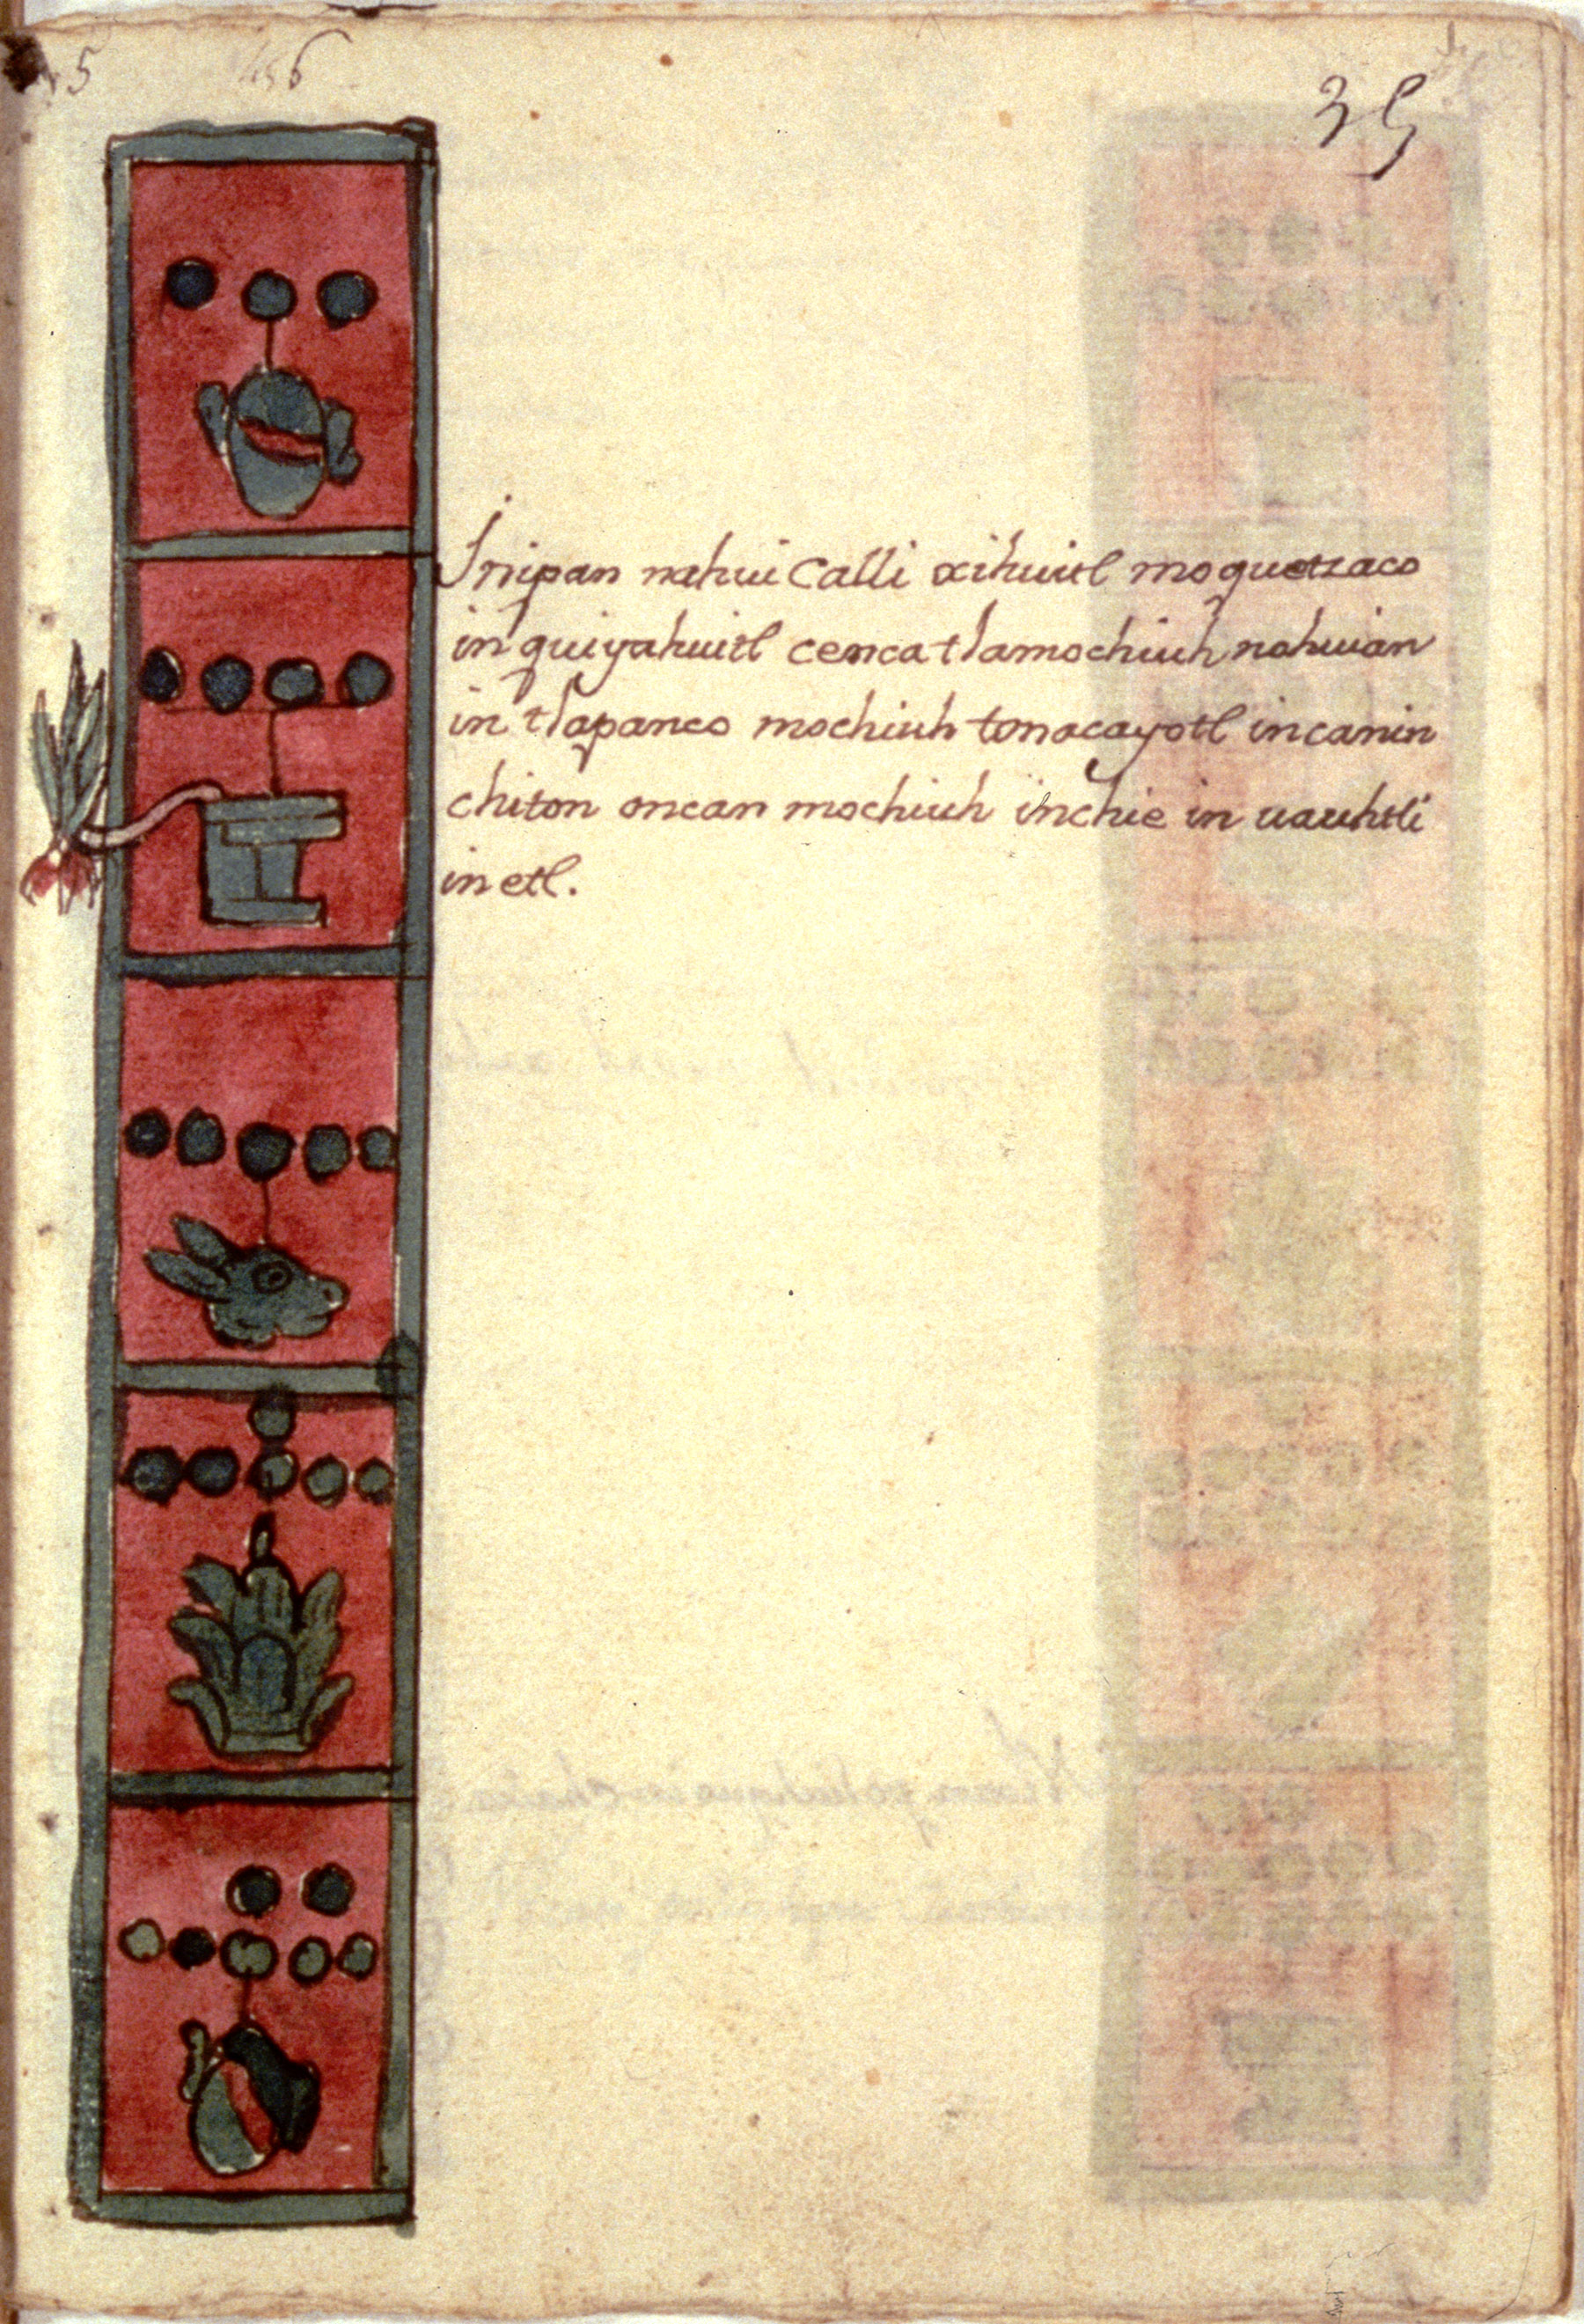 35
Inipan nahui calli xihuitl moquetzaco
in quiyahuitl cenca tlamochiuh nohuian
in tlapanco mochiuh tonacayotl incanin
chiton oncan mochiuh inchie in uauhtli
in etl.